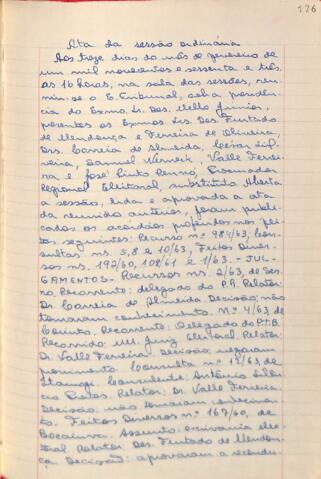 176
Ata da sessão ordinária
Aos treze dias do mês de fevereiro de
um mil novecentos e sessenta e três,
às 16 horas, na sala das sessões, reu-
niu-se o E. Tribunal, sob a presidên-
cia do Exmo. Sr. Des. Mello Junior,
presentes os Exmos. Srs. Des. Furtado
de Mendonça e Ferreira de Oliveira,
Drs. Correia de Almeida, César Sil-
veira, Samuel Werneck, Valle Ferrei-
ra e José Pinto Renno, Procurador
Regional Eleitoral, substituto. Aberta
a sessão, lida e aprovada a ata
da reunião anterior, foram publi-
cados os acórdãos proferidos nos fei-
tos seguintes: Recurso nº 984/63, Con-
sultas ns. 5, 8 e 10/63, Feitos Diver-
sos ns. 192/60, 108/61 e 1/63. - JUL-
GAMENTOS. - Recursos ns. 2/63, de
Recorrente: delegado do P.R. Relator:
Dr. Correia de Almeida. Decisão: não
tomaram conhecimento. Nº 4/63, de
Corinto. Recorrente: Delegado do P.T.B.
Recorrido: M. Juiz Eleitoral. Relator:
Dr. Valle Ferreira. Decisão: negaram
provimento. Consulta nº 12/63, de
Itamogi. Consulente: Antônio
Relator: Dr. Valle Ferreira
Decisão: não tomaram conhecimen-
to. Feitos Diversos nº 167/60, de
Bocaiuva. Assunto: escrivania elei-
toral. Relator: Des. Furtado de Mendon-
ça. Decisão: aprovaram a recondu-